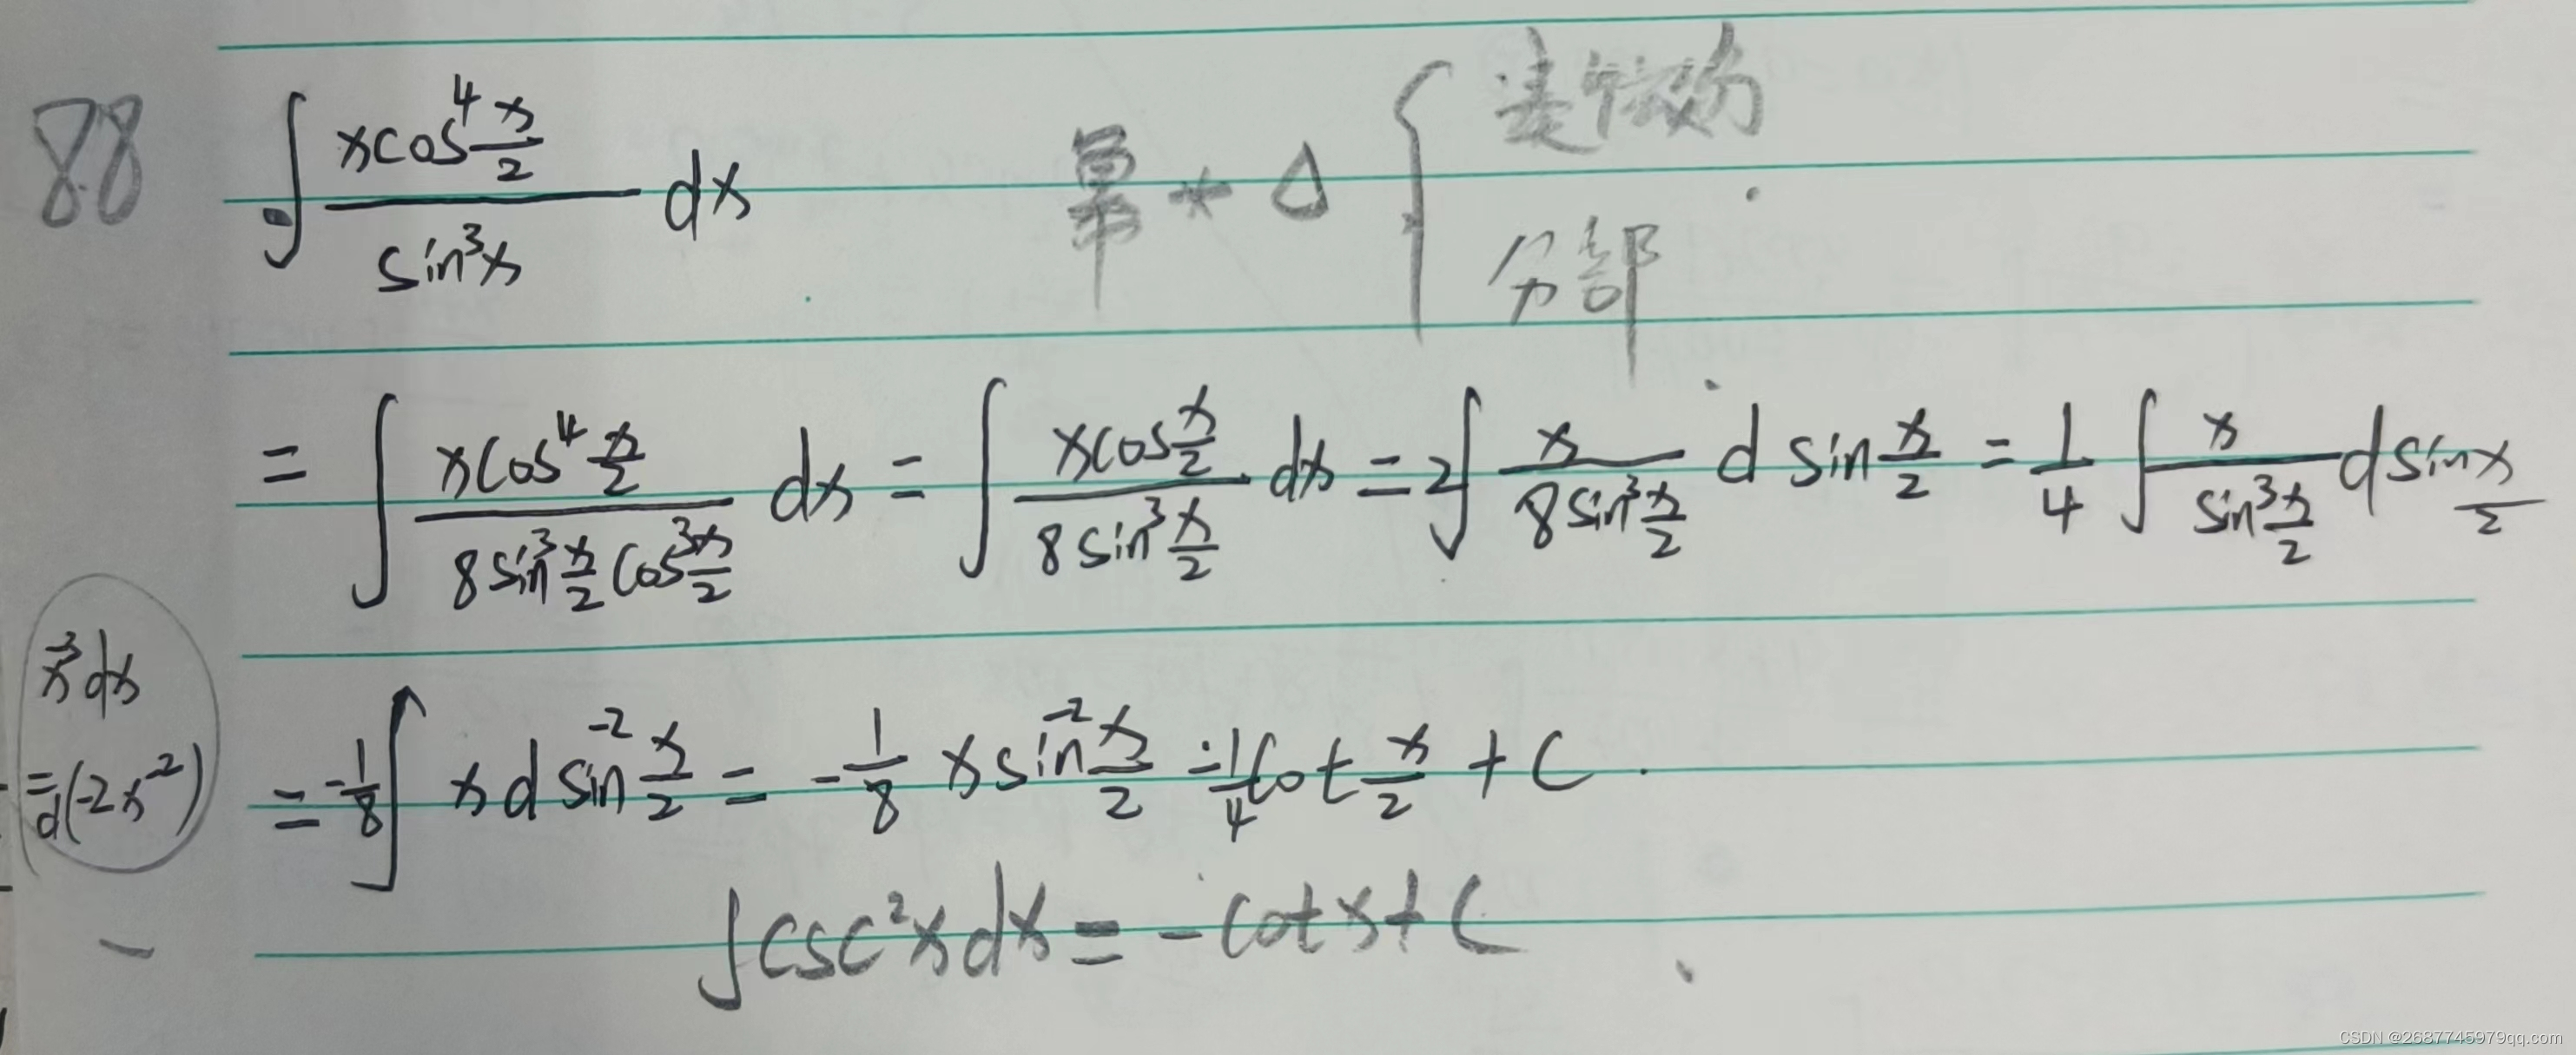 88 ∫ xcos⁴(x/2) / sin³x dx 单 * Δ { 凑微分
分部
= ∫ xcos⁴(x/2) / 8sin³(x/2)cos³(x/2) dx = ∫ xcos(x/2) / 8sin³(x/2) dx = 2∫ x / 8sin³(x/2) d sin(x/2) = 1/4 ∫ x / sin³(x/2) dsin(x/2)
x⁻³dx
= d(-2x⁻²)
= -1/8 ∫ x d sin⁻²(x/2) = -1/8 x sin⁻²(x/2) - 1/4 cot(x/2) + C.
∫csc²xdx = -cotx+C
CSDN @2687745979qq.com